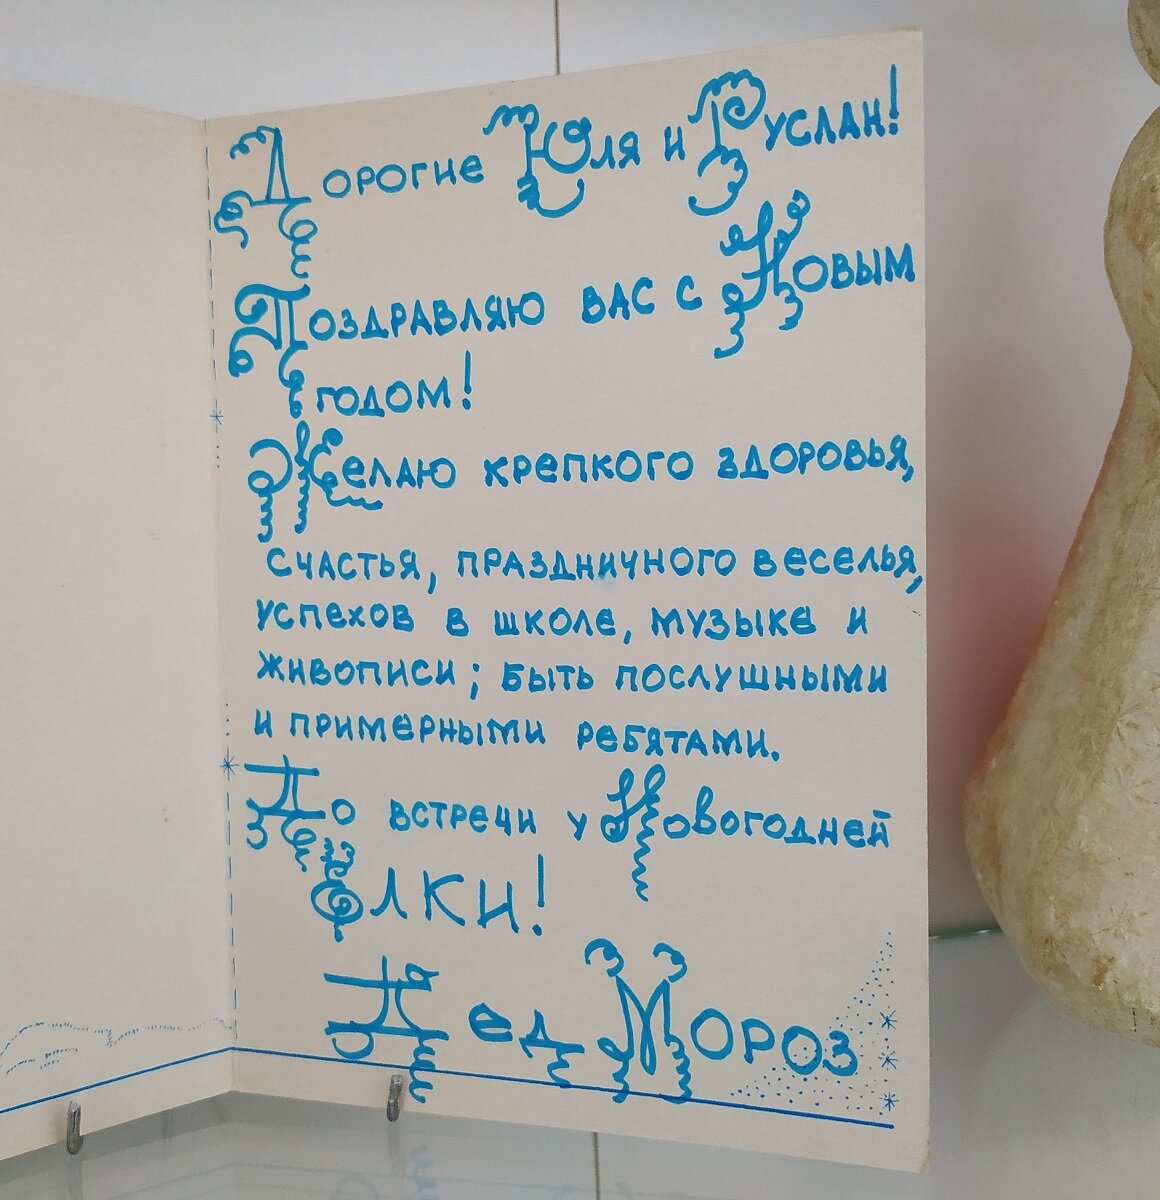 Дорогие Юля и Руслан!
Поздравляю вас с Новым
годом!
Желаю крепкого здоровья,
счастья, праздничного веселья,
успехов в школе, музыке и
живописи; быть послушными
и примерными ребятами.
До встречи у Новогодней
Ёлки!
Дед Мороз